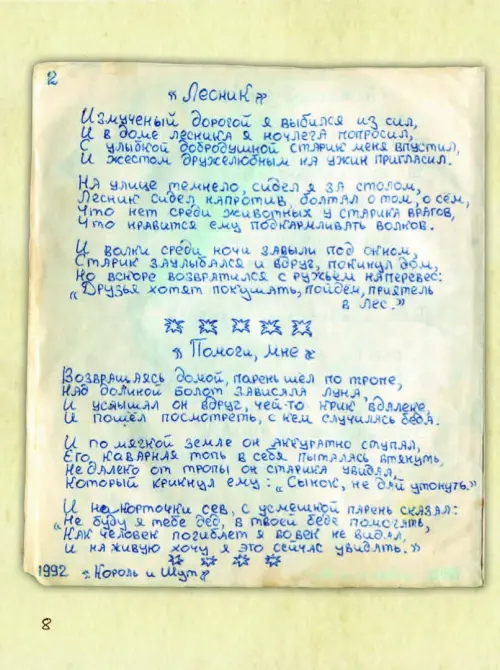 2
"Лесник"
Измученый дорогой я выбился из сил,
И в доме лесника я ночлега попросил,
С улыбкой добродушной старик меня впустил,
И жестом дружелюбным на ужин пригласил.
На улице темнело, сидел я за столом,
Лесник сидел напротив, болтал о том, о сём,
Что нет среди животных у старика врагов,
Что нравится ему подкармливать волков.
И волки среди ночи завыли под окном,
Старик заулыбался и вдруг, покинул дом,
Но вскоре возвратился с ружьём наперевес:
"Друзья хотят покушать, пойдём, приятель
в лес."
"Помоги, мне"
Возвращаясь домой, парень шёл по тропе,
Над долиной болот зависала луна,
И услышал он вдруг, чей-то крик вдалеке,
И пошёл посмотреть, с кем случилась беда.
И по мягкой земле он аккуратно ступал,
Его каварная топь в себя пыталась втянуть,
Не далеко от тропы он старика увидал,
Который крикнул ему: "Сынок, не дай утонуть."
И на корточки сев, с усмешкой парень сказал:
"Не буду я тебе дед, в твоей беде помогать,
Как человек погибает я вовек не видал,
И на живую хочу я это сейчас увидать."
1992 "Король и Шут"
8